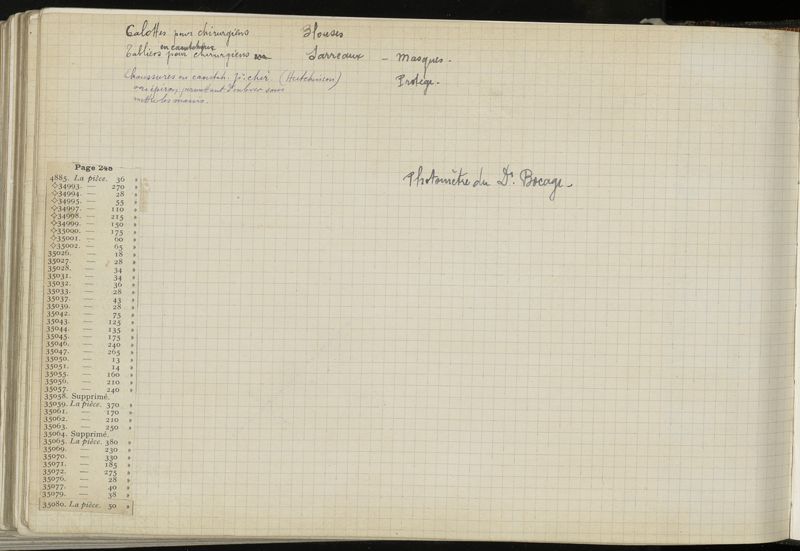 Calottes pour chirurgiens Blouses
en caoutchouc
Tabliers pour chirurgiens Sarreaux - Masques.
Chaussures en caoutch. (Hutchinson) Protège.
permettant d'enlever sans
mettre les mains.
Photomètre du Dr. Bocage
Page 240
4885. La pièce. 36 »
◇34993. — 270 »
◇34994. — 28 »
◇34995. — 55 »
◇34997. — 110 »
◇34998. — 215 »
◇34999. — 150 »
◇35000. — 175 »
◇35001. — 60 »
◇35002. — 65 »
35026. — 18 »
35027. — 28 »
35028. — 34 »
35031. — 34 »
35032. — 36 »
35033. — 28 »
35037. — 43 »
35039. — 28 »
35042. — 75 »
35043. — 125 »
35044. — 135 »
35045. — 175 »
35046. — 240 »
35047. — 265 »
35050. — 13 »
35051. — 14 »
35055. — 160 »
35056. — 210 »
35057. — 240 »
35058. Supprimé.
35059. La pièce. 370 »
35061. — 170 »
35062. — 210 »
35063. — 250 »
35064. Supprimé.
35065. La pièce. 380 »
35069. — 230 »
35070. — 330 »
35071. — 185 »
35072. — 275 »
35076. — 28 »
35077. — 40 »
35079. — 38 »
35080. La pièce. 50 »